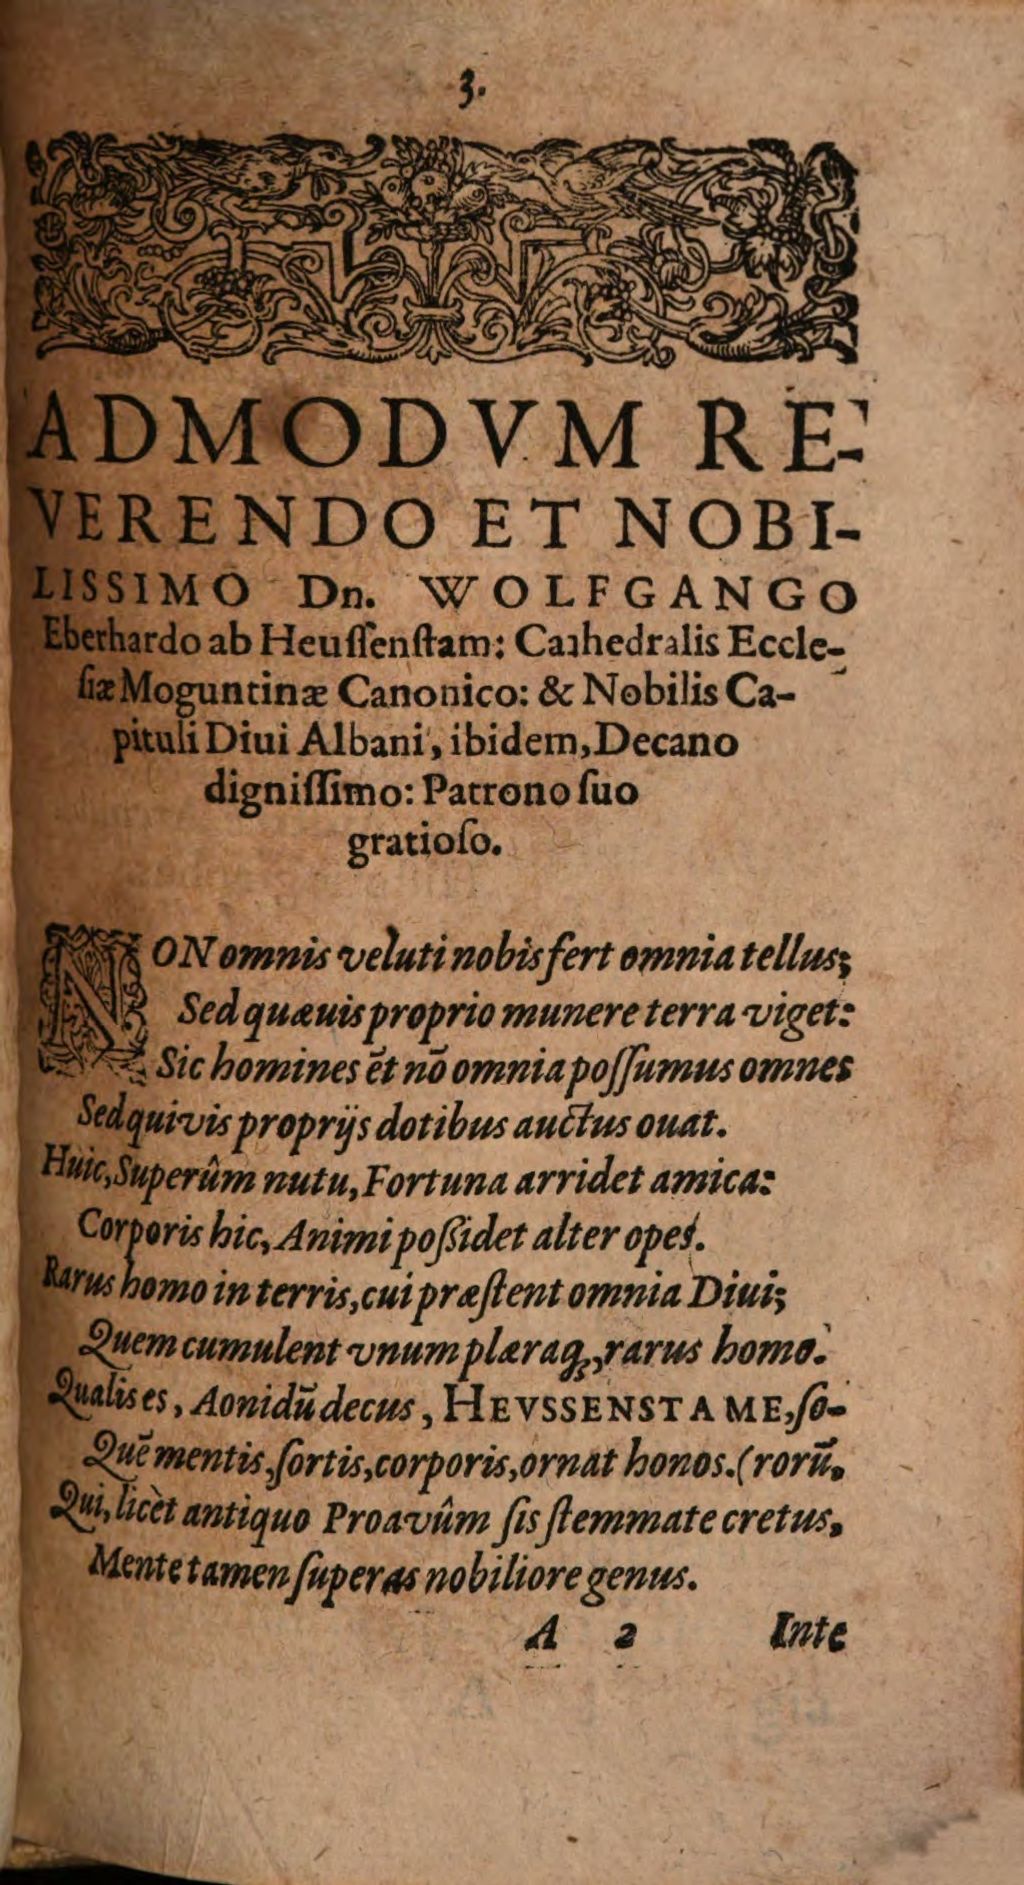 3.
ADMODVM RE-
VERENDO ET NOBI-
LISSIMO Dn. WOLFGANGO
Eberhardo ab Heuſſenſtam: Cathedralis Eccle-
ſiæ Moguntinæ Canonico: & Nobilis Ca-
pituli Diui Albani, ibidem, Decano
digniſſimo: Patrono ſuo
gratioſo.
NON omnis veluti nobis fert omnia tellus;
Sed quæuis proprio munere terra viget:
Sic homines ēt nō omnia poſſumus omnes
Sed quivis proprijs dotibus auctus ouat.
Huic, Superûm nutu, Fortuna arridet amica:
Corporis hic, Animi poſsidet alter opes.
Rarus homo in terris, cui præſtent omnia Diui;
Quem cumulent vnum plæraq;, rarus homo.
Qualis es, Aonidū decus, HEVSSENSTAME, ſo-
Quē mentis, ſortis, corporis, ornat honos. (rorū,
Qui, licèt antiquo Proavûm ſis ſtemmate cretus,
Mente tamen ſuperas nobiliore genus.
A 2 Inte